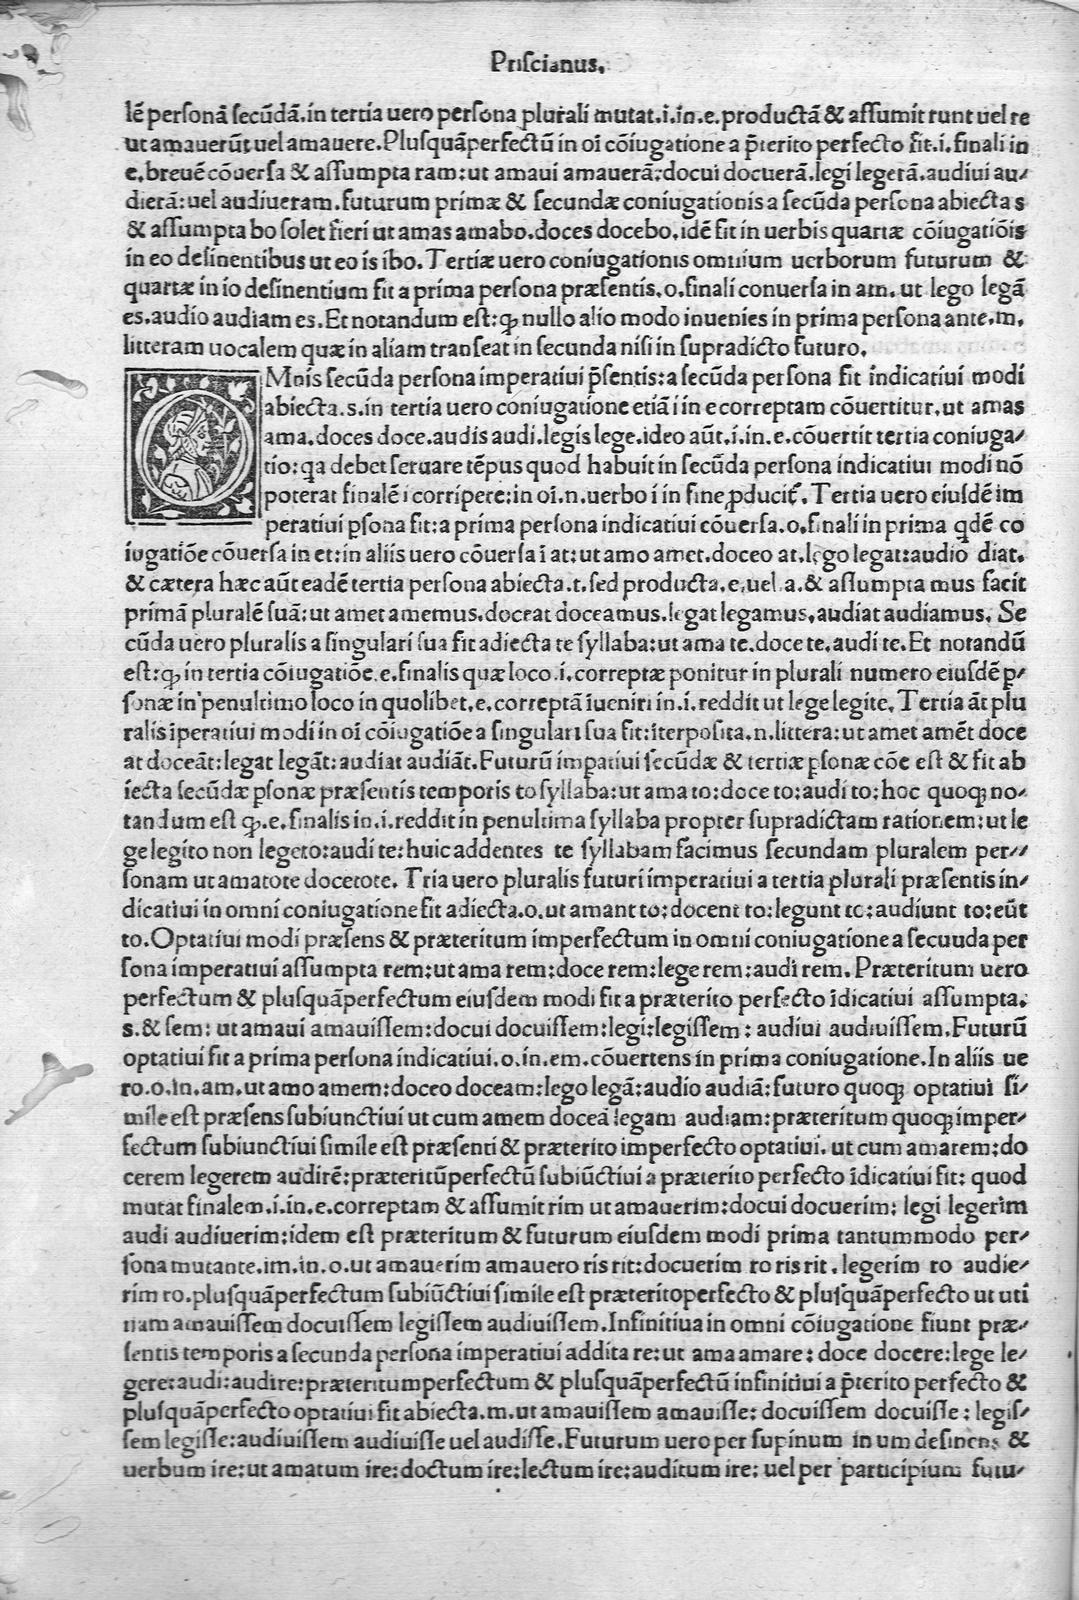 Priſcianus.
lē perſonā ſecūdā.in tertia uero perſona plurali mutat.i.in.e.productā & aſſumit runt uel re
ut amauerūt uel amauere.Pluſquāperfectū in oi cōiugatione a p̄terito perfecto fit.i.finali in
e.breuē cōuerſa & aſſumpta ram:ut amaui amauerā:docui docuerā.legi legerā.audiui au/
dierā:uel audiueram.futurum primæ & ſecundæ coniugationis a ſecūda perſona abiecta s
& aſſumpta bo ſolet fieri ut amas amabo.doces docebo.idē fit in uerbis quartæ cōiugatiōis
in eo deſinentibus ut eo is ibo.Tertiæ uero coniugationis omnium uerborum futurum &
quartæ in io deſinentium fit a prima perſona præſentis.o.finali conuerſa in am. ut lego legā
es.audio audiam es.Et notandum eſt:ꝙ nullo alio modo inuenies in prima perſona ante.m.
litteram uocalem quæ in aliam tranſeat in ſecunda niſi in ſupradicto futuro.
OMnis ſecūda perſona imperatiui p̄ſentis:a ſecūda perſona fit indicatiui modi
abiecta.s.in tertia uero coniugatione etiā i in e correptam cōuertitur.ut amas
ama.doces doce.audis audi.legis lege.ideo aūt.i.in.e.cōuertit tertia coniuga/
tio:qa debet ſeruare tēpus quod habuit in ſecūda perſona indicatiui modi nō
poterat finalē i corripere:in oi.n.uerbo i in fine ꝓducit̄.Tertia uero eiuſdē im
peratiui ꝑſona fit:a prima perſona indicatiui cōuerſa.o.finali in prima qdē co
iugatiōe cōuerſa in et:in aliis uero cōuerſa ī at:ut amo amet.doceo at.lego legat:audio diat.
& cætera hæc aūt eadē tertia perſona abiecta.t.ſed producta.e.uel a.& aſſumpta mus facit
primā pluralē ſuā:ut amet amemus.doceat doceamus.legat legamus.audiat audiamus. Se
cūda uero pluralis a ſingulari ſua fit adiecta te ſyllaba:ut ama te.doce te.audi te.Et notandū
eſt:ꝙ in tertia cōiugatiōe.e.finalis quæ loco.i.correptæ ponitur in plurali numero eiuſdē ꝑ/
ſonæ in penultimo loco in quolibet.e.correptā iueniri in.i.reddit ut lege legite.Tertia āt plu
ralis iperatiui modi in oi cōiugatiōe a ſingulari ſua fit:iterpoſita.n.littera:ut amet amēt doce
at doceāt:legat legāt:audiat audiāt.Futurū imꝑatiui ſecūdæ & tertiæ ꝑſonæ cōe eſt & fit ab
iecta ſecūdæ ꝑſonæ præſentis temporis to ſyllaba:ut ama to:doce to:audi to:hoc quoqꝫ no/
tandum eſt ꝙ.e.finalis in.i.reddit in penultima ſyllaba propter ſupradictam rationem:ut le
ge legito non legeto:audi te:huic addentes te ſyllabam facimus ſecundam pluralem per//
ſonam ut amatote docetote. Tria uero pluralis futuri imperatiui a tertia plurali præſentis in/
dicatiui in omni coniugatione fit adiecta.o.ut amant to:docent to:legunt to:audiunt to:eūt
to.Optatiui modi præſens & præteritum imperfectum in omni coniugatione a ſecuuda per
ſona imperatiui aſſumpta rem:ut ama rem:doce rem:lege rem:audi rem. Præteritum uero
perfectum & pluſquāperfectum eiuſdem modi fit a præterito perfecto idicatiui aſſumpta.
s.& ſem: ut amaui amauiſſem:docui docuiſſem:legi:legiſſem: audiui audiuiſſem.Futurū
optatiui fit a prima perſona indicatiui.o.in.em.cōuertens in prima coniugatione.In aliis ue
ro.o.in.am.ut amo amem:doceo doceam:lego legā:audio audiā:futuro quoqꝫ optatiui ſi/
mile eſt præſens ſubiunctiui ut cum amem doceā legam audiam:præteritum quoqꝫ imper/
fectum ſubiunctiui ſimile eſt præſenti & præterito imperfecto optatiui.ut cum amarem:do
cerem legerem audirē:præteritū perfectū ſubiūctiui a præterito perfecto idicatiui fit: quod
mutat finalem.i.in.e.correptam & aſſumit rim ut amauerim:docui docuerim: legi legerim
audi audiuerim:idem eſt præteritum & futurum eiuſdem modi prima tantummodo per/
ſona mutante.im.in.o.ut amauerim amauero ris rit:docuerim ro ris rit.legerim ro audie/
rim ro.pluſquāperfectum ſubiūctiui ſimile eſt præterito perfecto & pluſquāperfecto ut uti
nam amauiſſem docuiſſem legiſſem audiuiſſem.Infinitiua in omni cōiugatione fiunt præ/
ſentis temporis a ſecunda perſona imperatiui addita re:ut ama amare:doce docere:lege le/
gere:audi:audire:præteritum perfectum & pluſquāperfectū infinitiui a p̄terito perfecto &
pluſquāperfecto optatiui fit abiecta.m.ut amauiſſem amauiſſe:docuiſſem docuiſſe:legiſ/
ſem legiſſe:audiuiſſem audiuiſſe uel audiſſe.Futurum uero per ſupinum in um deſinens &
uerbum ire:ut amatum ire:doctum ire:lectum ire:auditum ire: uel per participium futu/